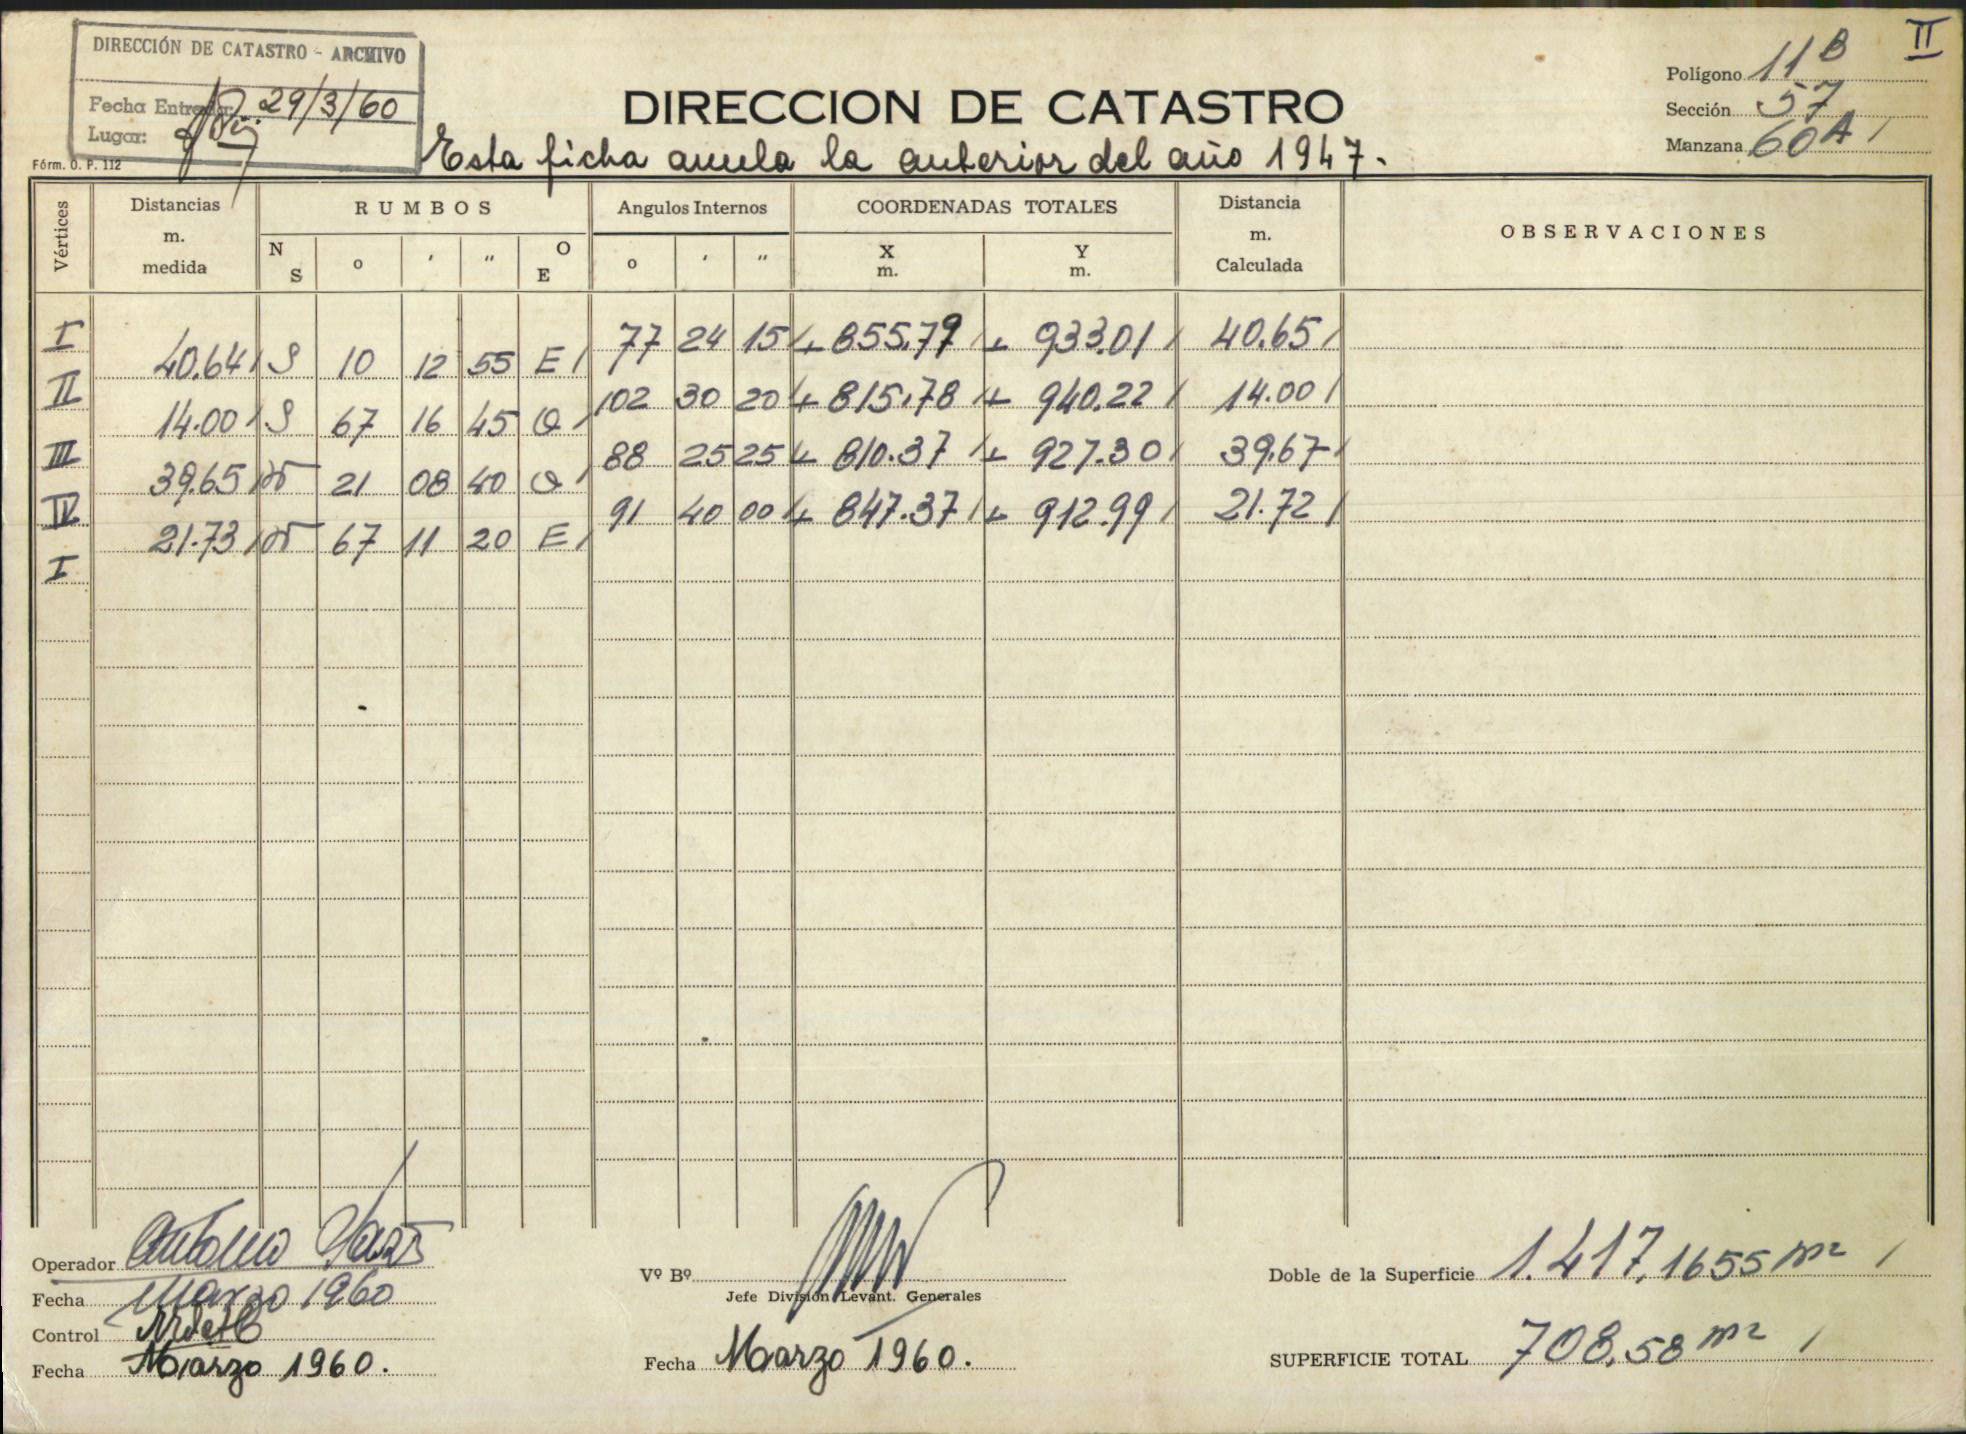 II
DIRECCIÓN DE CATASTRO - ARCHIVO
Fecha Entrada: 29/3/60
Lugar:
Fórm. O. P. 112
DIRECCION DE CATASTRO
Esta ficha anula la anterior del año 1947.
Polígono 11B
Sección 57
Manzana 60A
Vértices Distancias m. medida RUMBOS Angulos Internos COORDENADAS TOTALES Distancia m. Calculada OBSERVACIONES
N S o ' " O E o ' " X m. Y m.
I 77 24 15 + 855.79 + 933.01 40.65
40.64 S 10 12 55 E
II 102 30 20 + 815.78 + 940.22 14.00
14.00 S 67 16 45 O
III 88 25 25 + 810.37 + 927.30 39.67
39.65 N 21 08 40 O
IV 91 40 00 + 847.37 + 912.99 21.72
21.73 N 67 11 20 E
I
Operador Antonio
Fecha Marzo 1960
Control
Fecha Marzo 1960.
Vº Bº
Jefe División Levant. Generales
Fecha Marzo 1960.
Doble de la Superficie 1.417,1655 m2
SUPERFICIE TOTAL 708.58 m2